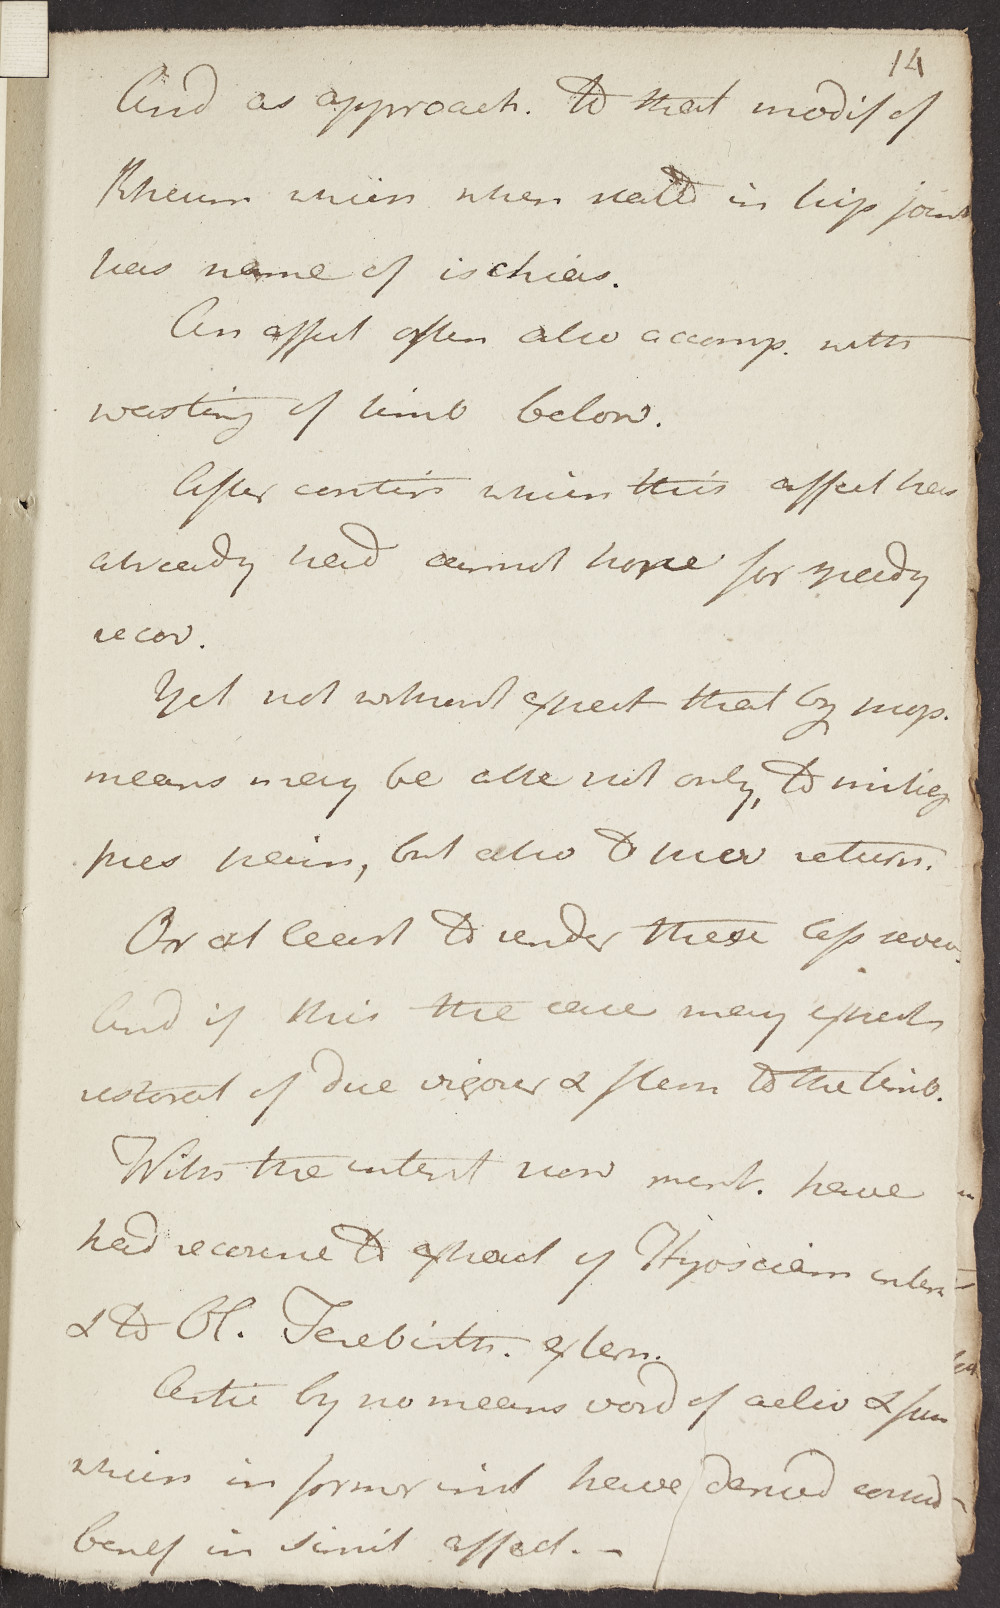 14
And as approach. to that modif of
Rheum which when seated in hip joint
has name of ischias.
An affect often also accomp. with
wasting of limb below.
After contin which this affect has
already had cannot hope for speedy
recov.
Yet not without expect that by prop.
means may be able not only, to mitig
pres pain, but also to prev return.
Or at least to render these less sever
And if this the case may expect
restorat of due vigour & to the limb.
With the intent now ment. have
had recourse to extract of Hyosciam intern
& to Ol. Terebinth. extern.
Artic by no means void of activ &
which in former inst have derived consid
benef in simil affect. -